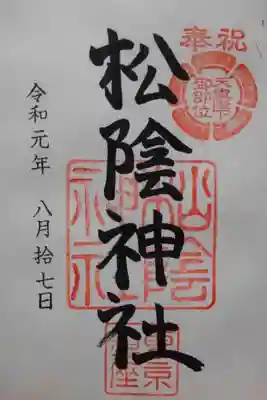 奉祝
天皇陛下
御即位
松陰神社
松陰神社
令和元年 八月拾七日